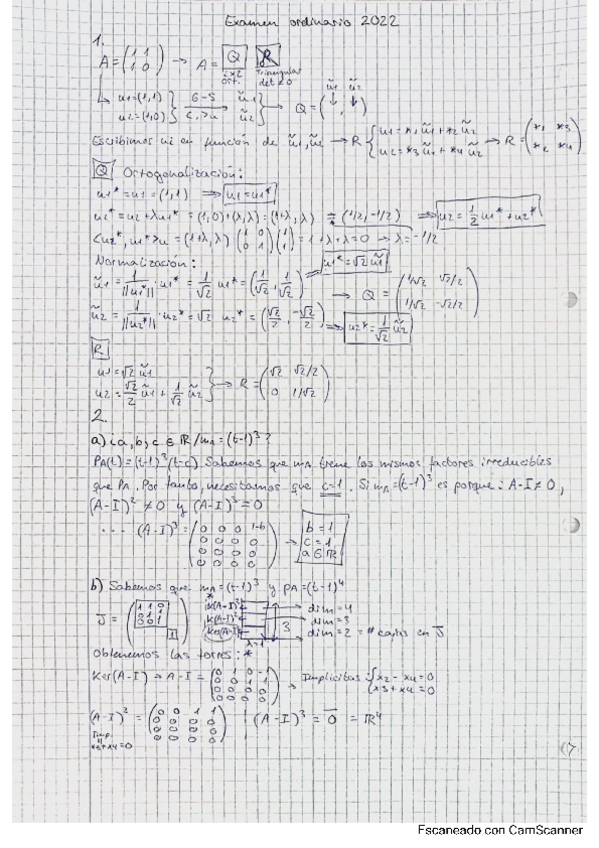 Examen ordinario 2022
1.
A = (1 1 / 1 0) → A = Q R
Triangular
det ≠ 0
u1 = (1,1) } G-S ũ1
u2 = (1,0) } <,>u ũ2 → Q = (↓, ↓)
Escribimos ui en función de ũ1, ũ2 → R { u1 = *1 ũ1 + *2 ũ2
u2 = *3 ũ1 + *4 ũ2 → R = (*1 *3 / *2 *4)
Q Ortogonalización:
u1* = u1 = (1,1) ⟹ u1 = u1*
u2* = u2 + λu1* = (1,0) + (λ,λ) = (1+λ, λ) = (1/2, -1/2) ⟹ u2 = 1/2 u1* + u2*
<u2*, u1*>u = (1+λ, λ) (1 0 / 0 1) (1 / 1) = 1 + λ + λ = 0 → λ = -1/2
Normalización: u1* = √2 ũ1
ũ1 = 1/||u1*|| · u1* = 1/√2 u1* = (1/√2, 1/√2)
→ Q = (1/√2 √2/2 / 1/√2 -√2/2)
ũ2 = 1/||u2*|| · u2* = √2 u2* = (√2/2, -√2/2) ⟹ u2* = 1/√2 ũ2
R
u1 = √2 ũ1
u2 = √2/2 ũ1 + 1/√2 ũ2 } → R = (√2 √2/2 / 0 1/√2)
2.
a) ¿a, b, c ∈ ℝ / mA = (t-1)³?
PA(t) = (t-1)³(t-c) Sabemos que mA tiene los mismos factores irreducibles
que PA. Por tanto, necesitamos que c=1. Si mA = (t-1)³ es porque: A-I ≠ 0,
(A-I)² ≠ 0 y (A-I)³ = 0
... (A-I)³ = (0 0 0 1-b / 0 0 0 0 / 0 0 0 0 / 0 0 0 0) → b = 1
c = 1
a ∈ ℝ
b) Sabemos que mA = (t-1)³ y pA = (t-1)⁴
J = (1 1 0 / 0 1 1 / 0 0 1 / 1)
Ker(A-I)³ → dim = 4
Ker(A-I)² → dim = 3
Ker(A-I) → dim = 2 = # cajas en J
3
λ=1
Obtenemos las torres: *
Ker(A-I) → A-I = (0 1 0 -1 / 0 0 1 1 / 0 0 0 0 / 0 0 0 0) → Implícitas: { x2 - x4 = 0
x3 + x4 = 0
(A-I)² = (0 0 1 1 / 0 0 0 0 / 0 0 0 0 / 0 0 0 0) | (A-I)³ = 0 = ℝ⁴
Imp.
x3+x4=0
Escaneado con CamScanner